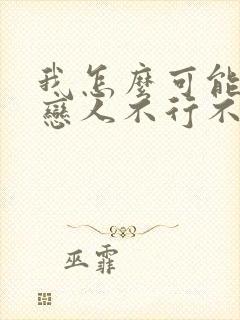 我怎麼可能
戀人不行不
巫霏